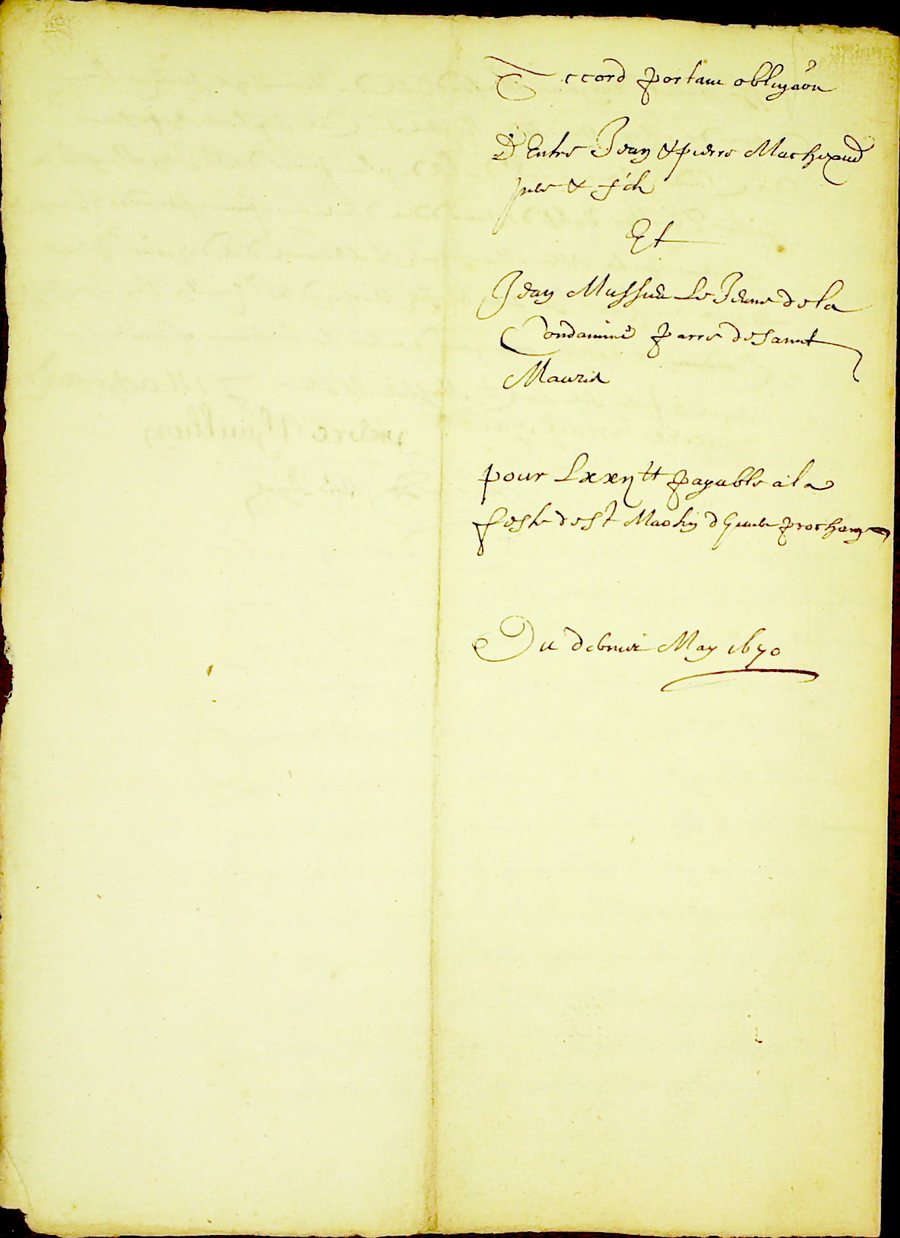 Accord portant obligaon
D'Entre Jean & pierre Macheaud
pere & fils
Et
Jean Mussier Le Jeune de la
Condamine parre de Sainct
Maurice
pour Lxxij tt payable a la
feste de st Martin d'hiver prochaine
Du dernier May 1670